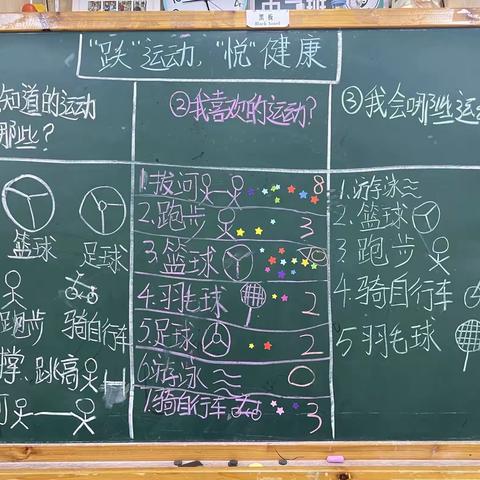 黑板
Black board
"跃"运动,"悦"健康
知道的运动
哪些?
篮球 足球
跑步 骑自行车
撑、跳高
②我喜欢的运动?
1.拔河 8
2.跑步 3
3.篮球 10
4.羽毛球 2
5.足球 2
6.游泳 0
7.骑自行车 3
③我会哪些运
1.游泳
2.篮球
3.跑步
4.骑自行车
5羽毛球